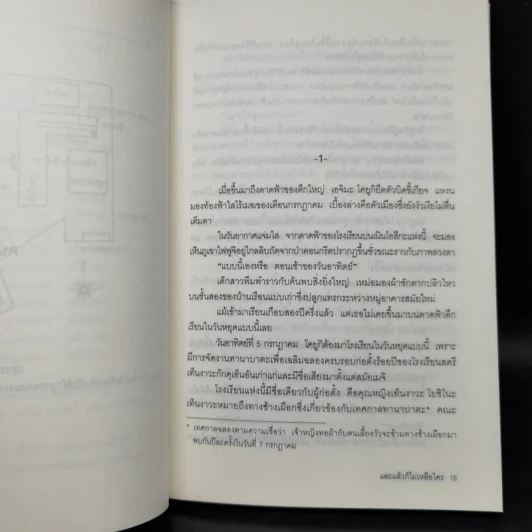 -1-
เมื่อขึ้นมาถึงดาดฟ้าของตึกใหญ่ เอจิมะ โคยูกิยืดตัวบิดขี้เกียจ แหงน
มองท้องฟ้าใสไร้เมฆของเดือนกรกฎาคม เบื้องล่างคือตัวเมืองซึ่งยังงัวเงียไม่ตื่น
เต็มตา
ในวันอากาศแจ่มใส จากดาดฟ้าของโรงเรียนบนเนินโอสึกะแห่งนี้ จะมอง
เห็นภูเขาไฟฟูจิอยู่ไกลลิบถัดจากป่าคอนกรีตปรากฏขึ้นชั่วขณะราวกับภาพลวงตา
"แบบนี้เองหรือ ตอนเช้าของวันอาทิตย์"
เด็กสาวพึมพำราวกับค้นพบสิ่งยิ่งใหญ่ เหม่อมองผ้าซักตากปลิวไหว
บนชั้นสองของบ้านเรือนแบบเก่าซึ่งปลูกแทรกระหว่างหมู่อาคารสมัยใหม่
แม้เข้ามาเรียนเกือบสองปีครึ่งแล้ว แต่เธอไม่เคยขึ้นมาบนดาดฟ้าตึก
เรียนในวันหยุดแบบนี้เลย
วันอาทิตย์ที่ 5 กรกฎาคม โคยูกิต้องมาโรงเรียนในวันหยุดแบบนี้ เพราะ
มีการจัดงานทานาบาตะเพื่อเฉลิมฉลองครบรอบก่อตั้งร้อยปีของโรงเรียนสตรี
เท็นงาวะกักคุเอ็นอันเก่าแก่และมีชื่อเสียงมาตั้งแต่สมัยเมจิ
โรงเรียนแห่งนี้มีชื่อเดียวกับผู้ก่อตั้ง คือคุณหญิงเท็นงาวะ โยชิโนะ
เท็นงาวะหมายถึงทางช้างเผือกซึ่งเกี่ยวข้องกับเทศกาลทานาบาตะ* คณะ
* เทศกาลฉลองตามความเชื่อว่า เจ้าหญิงทอผ้ากับคนเลี้ยงวัวจะข้ามทางช้างเผือกมา
พบกันปีละครั้งในวันที่ 7 กรกฎาคม
และแล้วก็ไม่เหลือใคร 15